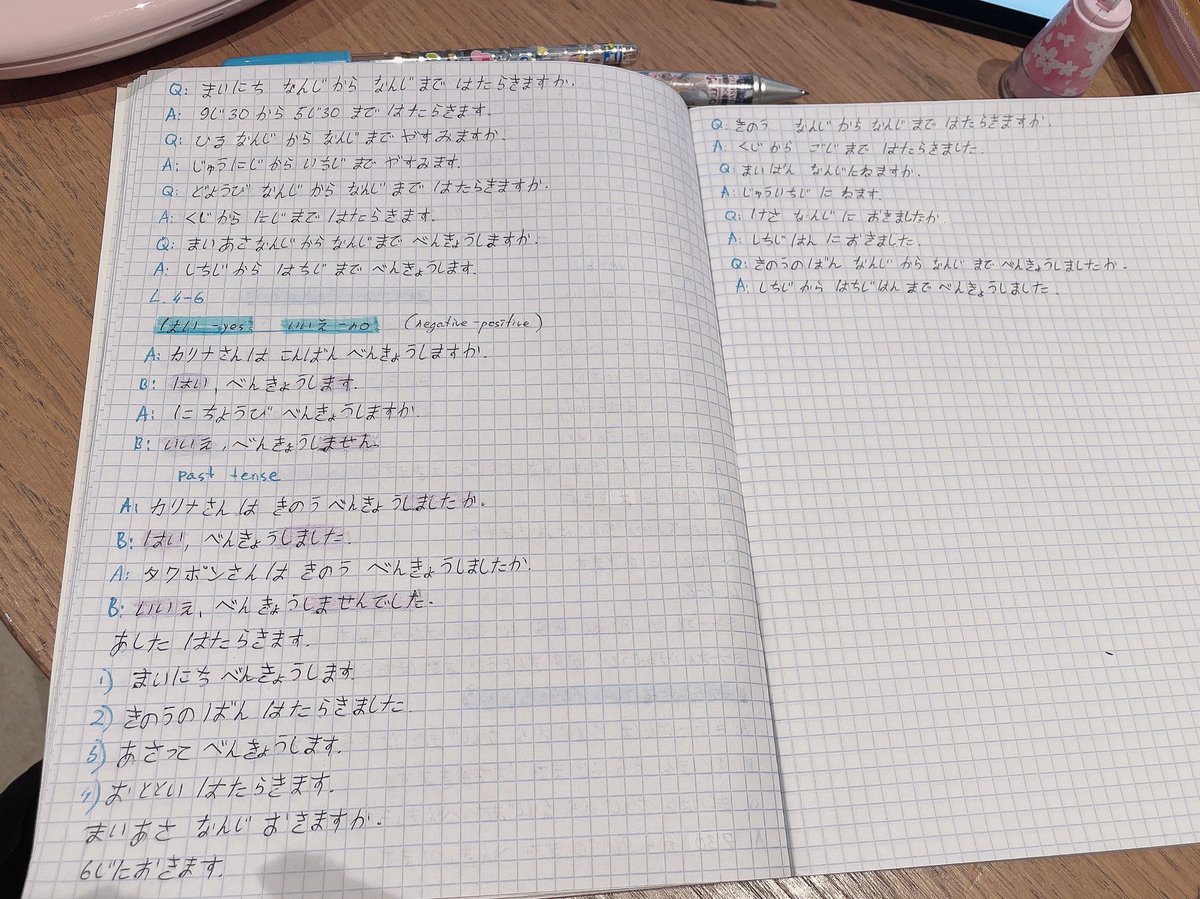 Q: まいにち なんじから なんじまで はたらきますか.
A: 9じ30から 5じ30 まで はたらきます.
Q: ひる なんじ から なんじ まで やすみますか.
A: じゅうにじから いちじ まで やすみます.
Q: どようび なんじ から なんじ まで はたらきますか.
A: くじから にじまで はたらきます.
Q: まいあさ なんじから なんじまで べんきょうしますか.
A: しちじから はちじ まで べんきょうします.
L. 4-6
はい -yes いいえ -no (negative-positive)
A: カリナさんは こんばん べんきょうしますか.
B: はい, べんきょうします.
A: にちようび べんきょうしますか.
B: いいえ, べんきょうしません.
past tense
A: カリナさんは きのう べんきょうしましたか.
B: はい, べんきょうしました.
A: タワポンさんは きのう べんきょうしましたか.
B: いいえ, べんきょうしませんでした.
あした はたらきます.
1) まいにち べんきょうします.
2) きのうの ばん はたらきました.
3) あさって べんきょうします.
4) おととい はたらきます.
まいあさ なんじ おきますか.
6じにおきます.
Q: きのう なんじ から なんじ まで はたらきますか.
A: くじ から ごじ まで はたらきました.
Q: まいばん なんじにねますか.
A: じゅういちじ に ねます.
Q: けさ なんじ に おきましたか
A: しちじ はん に おきました.
Q: きのうのばん なんじ から なんじ まで べんきょうしましたか.
A: しちじ から はちじはん まで べんきょうしました.